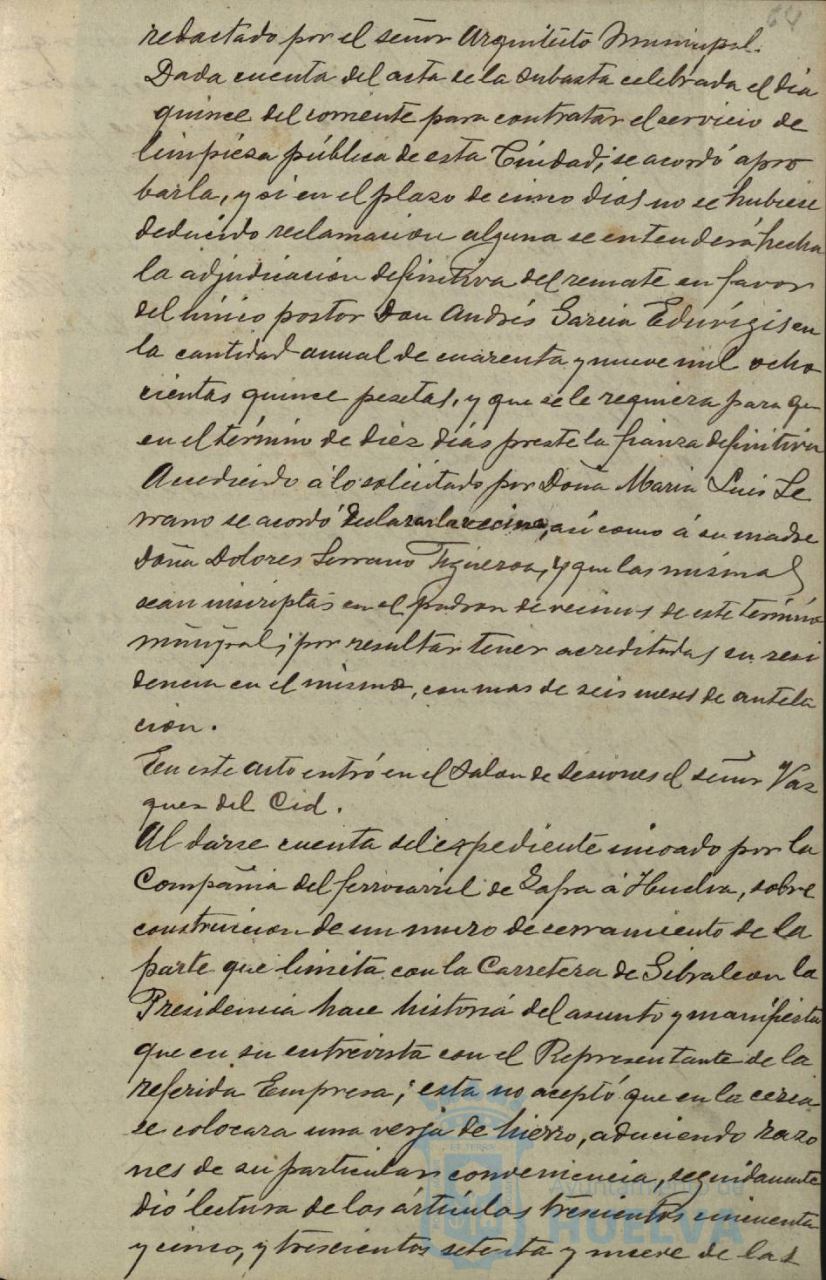 64
redactado por el señor Arquitecto Municipal.
Dada cuenta del acta de la Subasta celebrada el dia
quince del corriente para contratar el servicio de
limpieza pública de esta Ciudad; se acordó apro
barla, y si en el plazo de cinco dias no se hubiese
deducido reclamacion alguna se entenderá hecha
la adjudicacion definitiva del remate en favor
del único postor Don Andrés Garcia Eduvigis en
la cantidad anual de cuarenta y nueve mil ocho
cientas quince pesetas, y que se le requiera para que
en el término de diez dias preste la fianza definitiva
Accediendo á lo solicitado por Doña Maria Luis Se
rrano se acordó declararla vecina, asi como á su madre
Doña Dolores Serrano Figueroa, y que las mismas
sean inscriptas en el padron de vecinos de este término
municipal; por resultar tener acreditada su resi
dencia en el mismo, con mas de seis meses de antela
cion.
En este acto entró en el Salon de Sesiones el señor Vaz
quez del Cid.
Al darse cuenta del expediente incoado por la
Compañia del ferrocarril de Zafra á Huelva, sobre
construccion de un muro de cerramiento de la
parte que limita con la Carretera de Gibraleon la
Presidencia hace historia del asunto y manifiesta
que en su entrevista con el Representante de la
referida Empresa; esta no aceptó que en la cerca
se colocara una verja de hierro, aduciendo razo
nes de su particular conveniencia, seguidamente
dió lectura de los artículos trescientos cincuenta
y cinco, y trescientos setenta y nueve de las
Ayuntamiento de
HUELVA